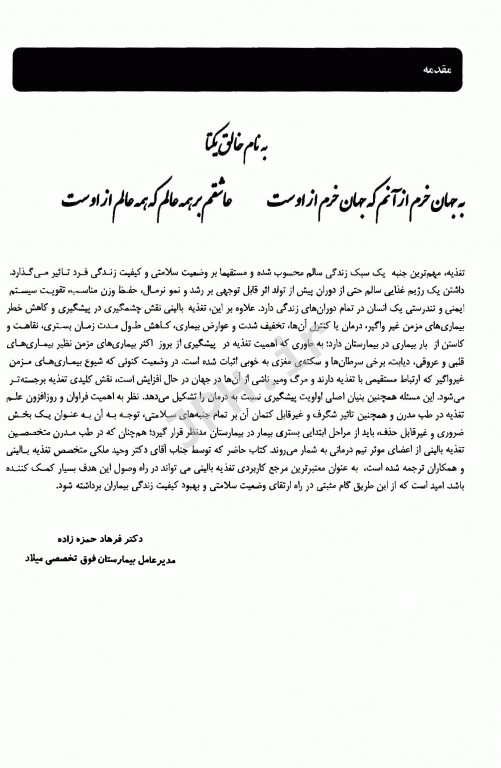 مقدمه
به نام خالق یکتا
به جهان خرم از آنم که جهان خرم از اوست عاشقم بر همه عالم که همه عالم از اوست
تغذیه، مهم‌ترین جنبه یک سبک زندگی سالم محسوب شده و مستقیما بر وضعیت سلامتی و کیفیت زندگی فرد تاثیر می‌گذارد.
داشتن یک رژیم غذایی سالم حتی از دوران پیش از تولد اثر قابل توجهی بر رشد و نمو نرمال، حفظ وزن مناسب، تقویت سیستم
ایمنی و تندرستی یک انسان در تمام دوران‌های زندگی دارد. علاوه بر این، تغذیه بالینی نقش چشمگیری در پیشگیری و کاهش خطر
بیماری‌های مزمن غیر واگیر، درمان یا کنترل آن‌ها، تخفیف شدت و عوارض بیماری، کاهش طول مدت زمان بستری، نقاهت و
کاستن از بار بیماری در بیمارستان دارد؛ به طوری که اهمیت تغذیه در پیشگیری از بروز اکثر بیماری‌های مزمن نظیر بیماری‌های
قلبی و عروقی، دیابت، برخی سرطان‌ها و سکته‌ی مغزی به خوبی اثبات شده است. در وضعیت کنونی که شیوع بیماری‌های مزمن
غیرواگیر که ارتباط مستقیمی با تغذیه دارند و مرگ ومیر ناشی از آن‌ها در جهان در حال افزایش است، نقش کلیدی تغذیه برجسته‌تر
می‌شود. این مسئله همچنین بنیان اصلی اولویت پیشگیری نسبت به درمان را تشکیل می‌دهد. نظر به اهمیت فراوان و روزافزون علم
تغذیه در طب مدرن و همچنین تاثیر شگرف و غیرقابل کتمان آن بر تمام جنبه‌های سلامتی، توجه به آن به عنوان یک بخش
ضروری و غیرقابل حذف، باید از مراحل ابتدایی بستری بیمار در بیمارستان مدنظر قرار گیرد؛ همچنان که در طب مدرن متخصصین
تغذیه بالینی از اعضای موثر تیم درمانی به شمار می‌روند. کتاب حاضر که توسط جناب آقای دکتر وحید ملکی متخصص تغذیه بالینی
و همکاران ترجمه شده است، به عنوان معتبرترین مرجع کاربردی تغذیه بالینی می تواند در راه وصول این هدف بسیار کمک کننده
باشد. امید است که از این طریق گام مثبتی در راه ارتقای وضعیت سلامتی و بهبود کیفیت زندگی بیماران برداشته شود.
دکتر فرهاد حمزه زاده
مدیرعامل بیمارستان فوق تخصصی میلاد